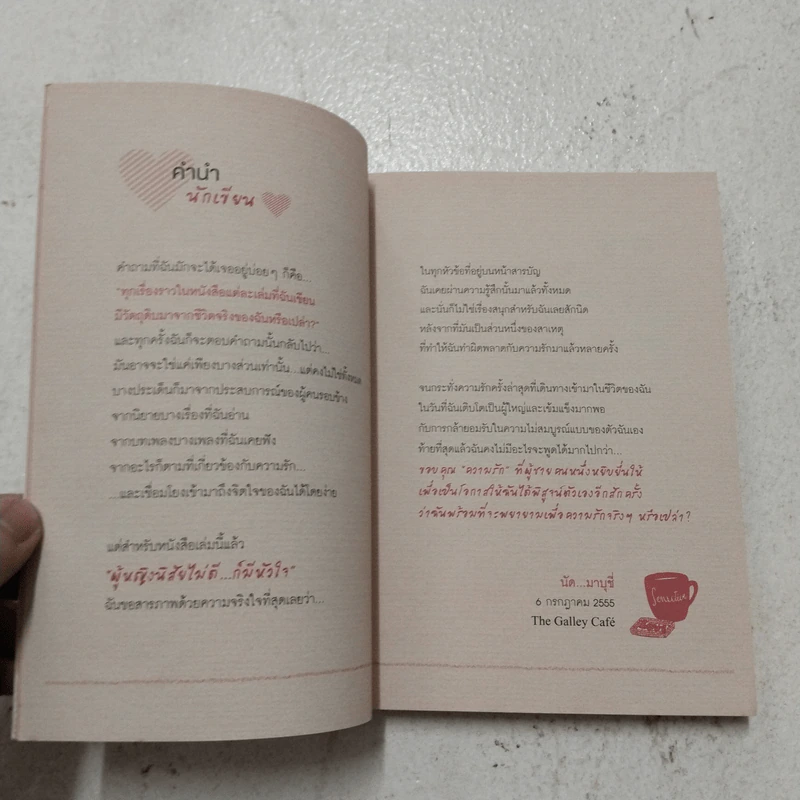 คำนำ
นักเขียน
คำถามที่ฉันมักจะได้เจออยู่บ่อยๆ ก็คือ...
"ทุกเรื่องราวในหนังสือแต่ละเล่มที่ฉันเขียน
มีวัตถุดิบมาจากชีวิตจริงของฉันหรือเปล่า"
และทุกครั้งฉันก็จะตอบคำถามนั้นกลับไปว่า...
มันอาจจะใช่แค่เพียงบางส่วนเท่านั้น...แต่คงไม่ใช่ทั้งหมด
บางประเด็นก็มาจากประสบการณ์ของผู้คนรอบข้าง
จากนิยายบางเรื่องที่ฉันอ่าน
จากบทเพลงบางเพลงที่ฉันเคยฟัง
จากอะไรก็ตามที่เกี่ยวข้องกับความรัก...
...และเชื่อมโยงเข้ามาถึงจิตใจของฉันได้โดยง่าย
แต่สำหรับหนังสือเล่มนี้แล้ว
"ผู้หญิงนิสัยไม่ดี...ก็มีหัวใจ"
ฉันขอสารภาพด้วยความจริงใจที่สุดเลยว่า...
ในทุกหัวข้อที่อยู่บนหน้าสารบัญ
ฉันเคยผ่านความรู้สึกนั้นมาแล้วทั้งหมด
และนั่นก็ไม่ใช่เรื่องสนุกสำหรับฉันเลยสักนิด
หลังจากที่มันเป็นส่วนหนึ่งของสาเหตุ
ที่ทำให้ฉันทำผิดพลาดกับความรักมาแล้วหลายครั้ง
จนกระทั่งความรักครั้งล่าสุดที่เดินทางเข้ามาในชีวิตของฉัน
ในวันที่ฉันเติบโตเป็นผู้ใหญ่และเข้มแข็งมากพอ
กับการกล้ายอมรับในความไม่สมบูรณ์แบบของตัวฉันเอง
ท้ายที่สุดแล้วฉันคงไม่มีอะไรจะพูดได้มากไปกว่า...
ขอบคุณ "ความรัก" ที่ผู้ชายคนหนึ่งหยิบยื่นให้
เพื่อเป็นโอกาสให้ฉันได้พิสูจน์ตัวเองอีกสักครั้ง
ว่าฉันพร้อมที่จะพยายามเพื่อความรักจริงๆ หรือเปล่า?
นัด...มาบุชี่
6 กรกฎาคม 2555
The Galley Café